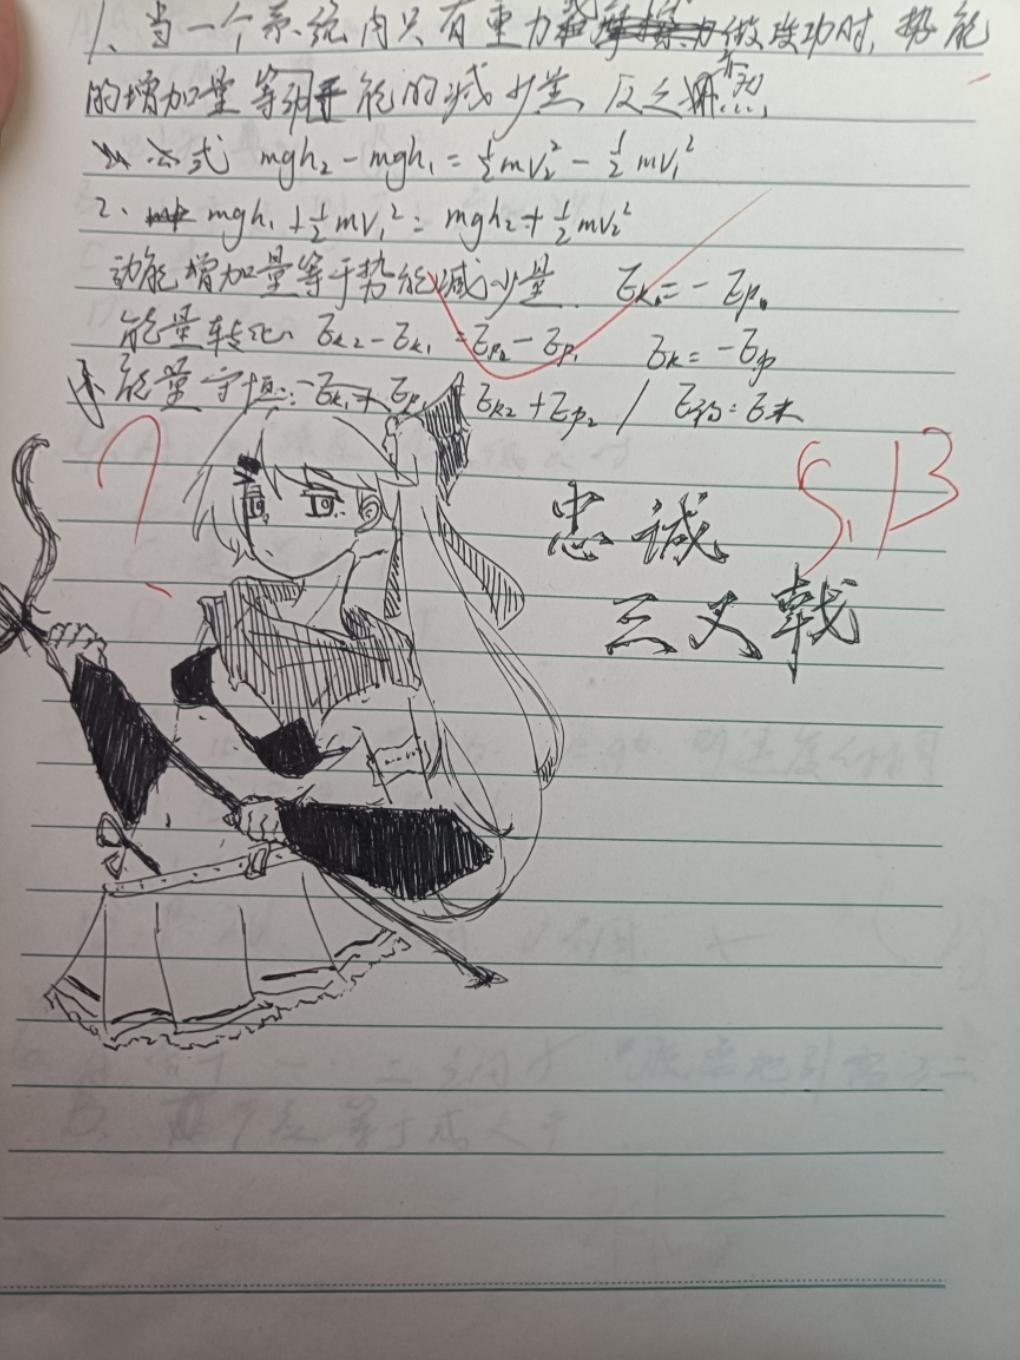 1、当一个系统内只有重力或 做功时,势能
的增加量等动能的减少量,反之亦然,
公式 mgh₂-mgh₁=½mv₂²-½mv₁²
2、mgh₁+½mv₁²=mgh₂+½mv₂²
动能增加量等于势能减少量. Ek=-Ep.
能量转化: Ek₂-Ek₁=Ep₂-Ep₁ Ek=-Ep
能量守恒: Ek₁+Ep₁=Ek₂+Ep₂ / E初=E末
?
5,13
忠诚
三叉戟